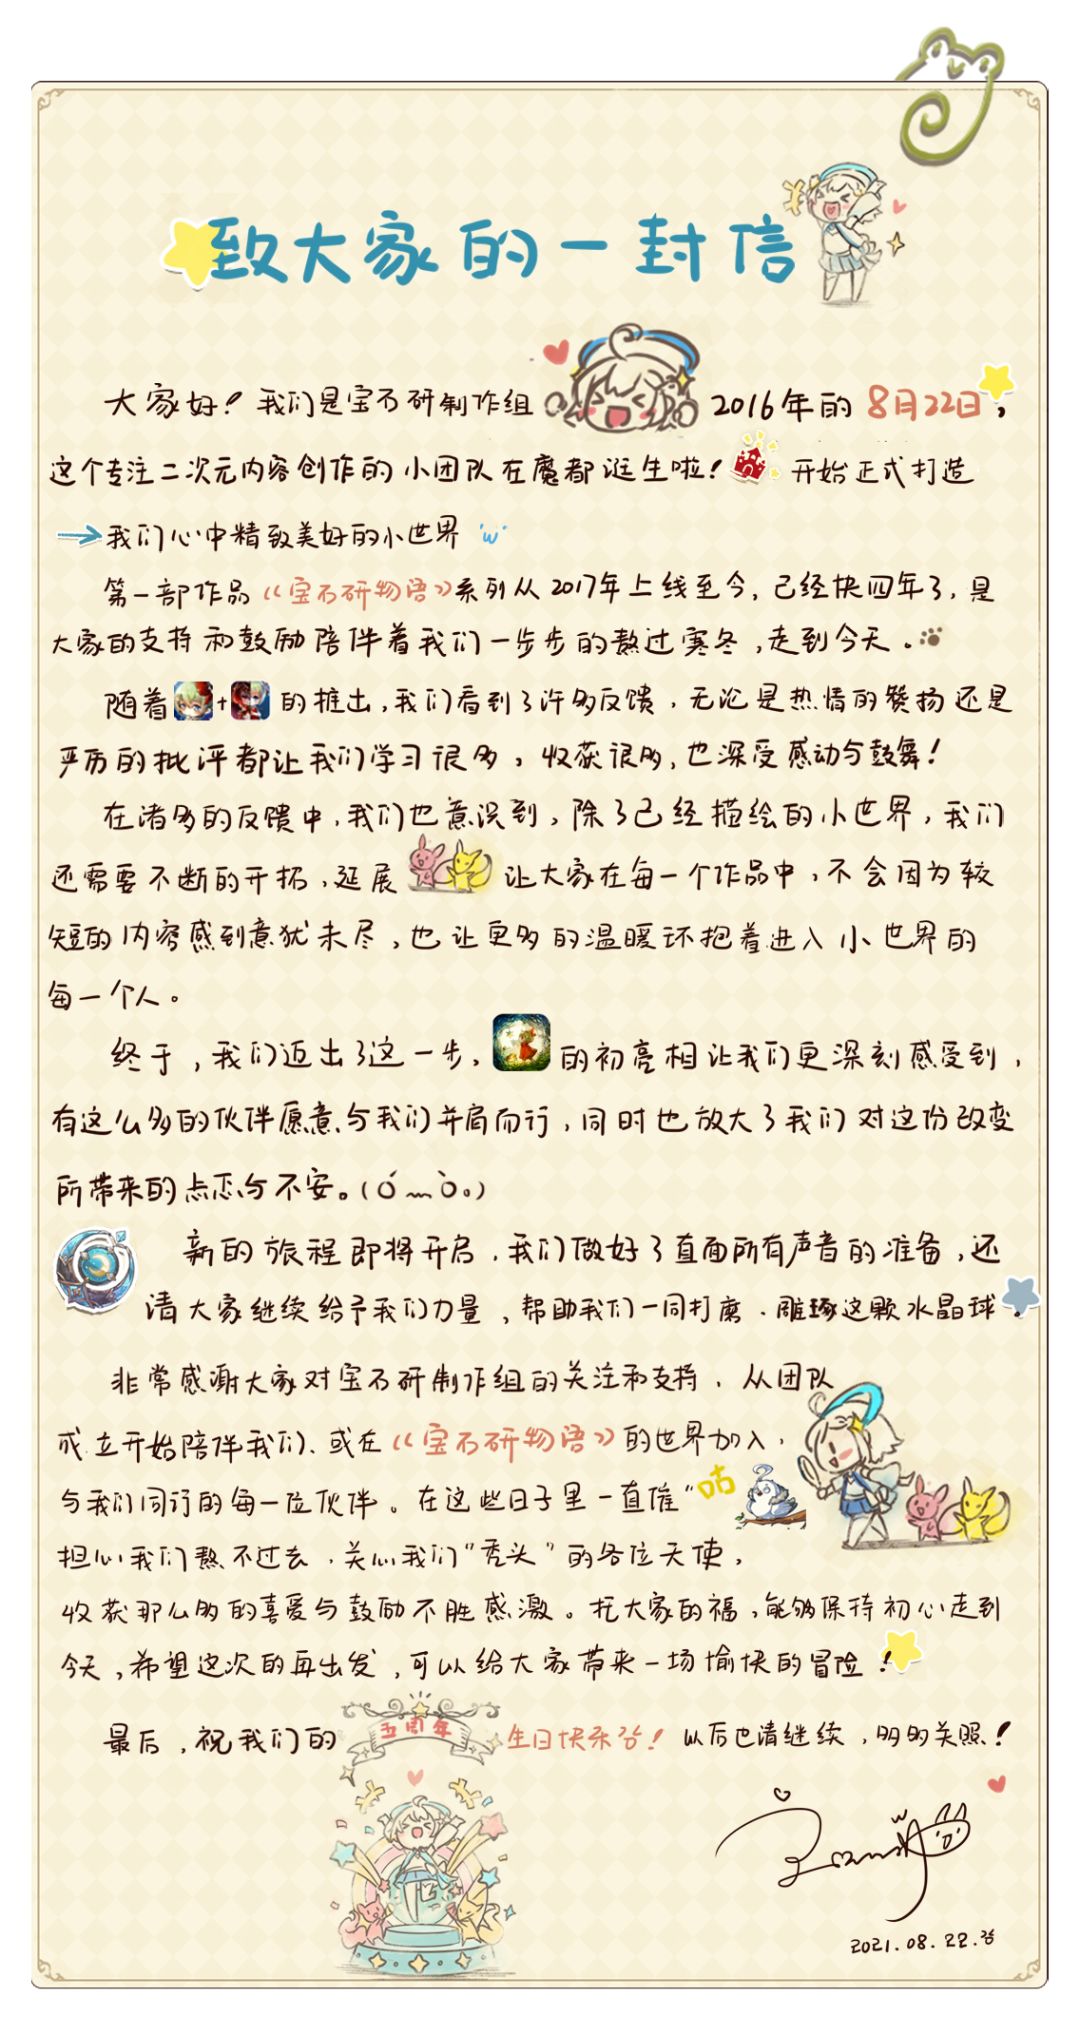 致大家的一封信
大家好！我们是宝石研制作组 2016年的8月22日，
这个专注二次元内容创作的小团队在魔都诞生啦！开始正式打造
我们心中精致美好的小世界 'w'
第一部作品《宝石研物语》系列从2017年上线至今，已经快四年了，是
大家的支持和鼓励陪伴着我们一步步的熬过寒冬，走到今天。
随着+的推出，我们看到了许多反馈，无论是热情的赞扬还是
严厉的批评都让我们学习很多，收获很多，也深受感动与鼓舞！
在诸多的反馈中，我们也意识到，除了已经描绘的小世界，我们
还需要不断的开拓，延展 让大家在每一个作品中，不会因为较
短的内容感到意犹未尽，也让更多的温暖环抱着进入小世界的
每一个人。
终于，我们迈出了这一步，的初亮相让我们更深刻感受到，
有这么多的伙伴愿意与我们并肩而行，同时也放大了我们对这份改变
所带来的忐忑与不安。(Ó﹏Ò。)
新的旅程即将开启，我们做好了直面所有声音的准备，还
请大家继续给予我们力量，帮助我们一同打磨、雕琢这颗水晶球！
非常感谢大家对宝石研制作组的关注和支持，从团队
成立开始陪伴我们、或在《宝石研物语》的世界加入，
与我们同行的每一位伙伴。在这些日子里一直催“咕
担心我们熬不过去，关心我们“秃头”的各位天使，
收获那么多的喜爱与鼓励不胜感激。托大家的福，能够保持初心走到
今天，希望这次的再出发，可以给大家带来一场愉快的冒险！
最后，祝我们的 五周年 生日快乐！以后也请继续，多多关照！
2021.08.22.